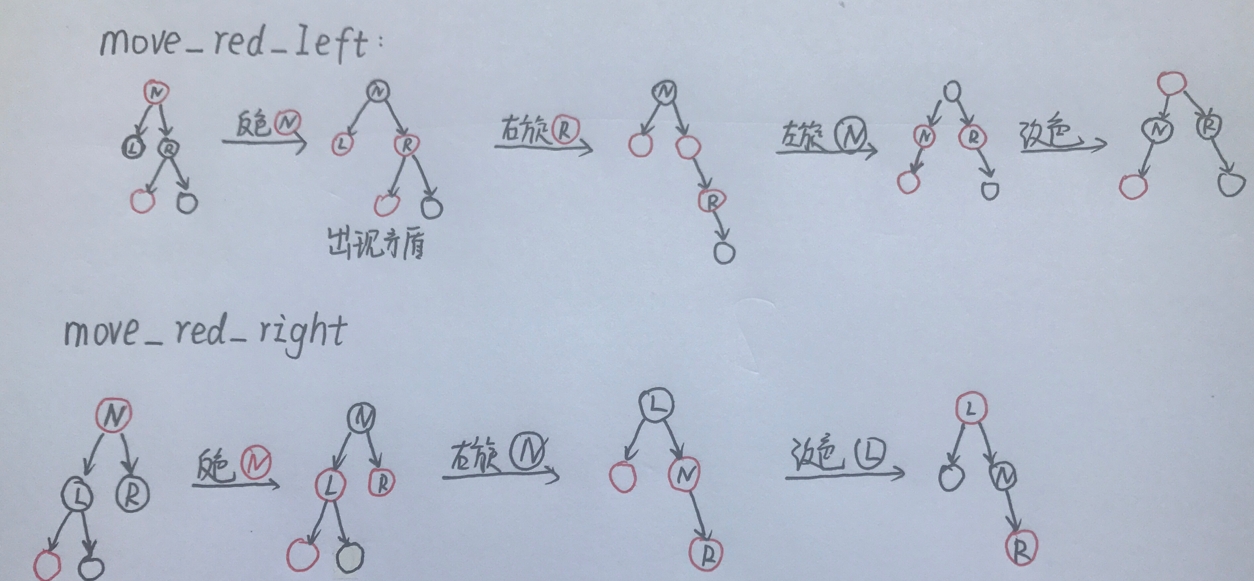 move_red_left:
N L R 反色 N N L R 右旋 R N R 左旋 N N R 改色 N R
出现矛盾
move_red_right
N L R 反色 N N L R 右旋 N L N R 改色 L L N R